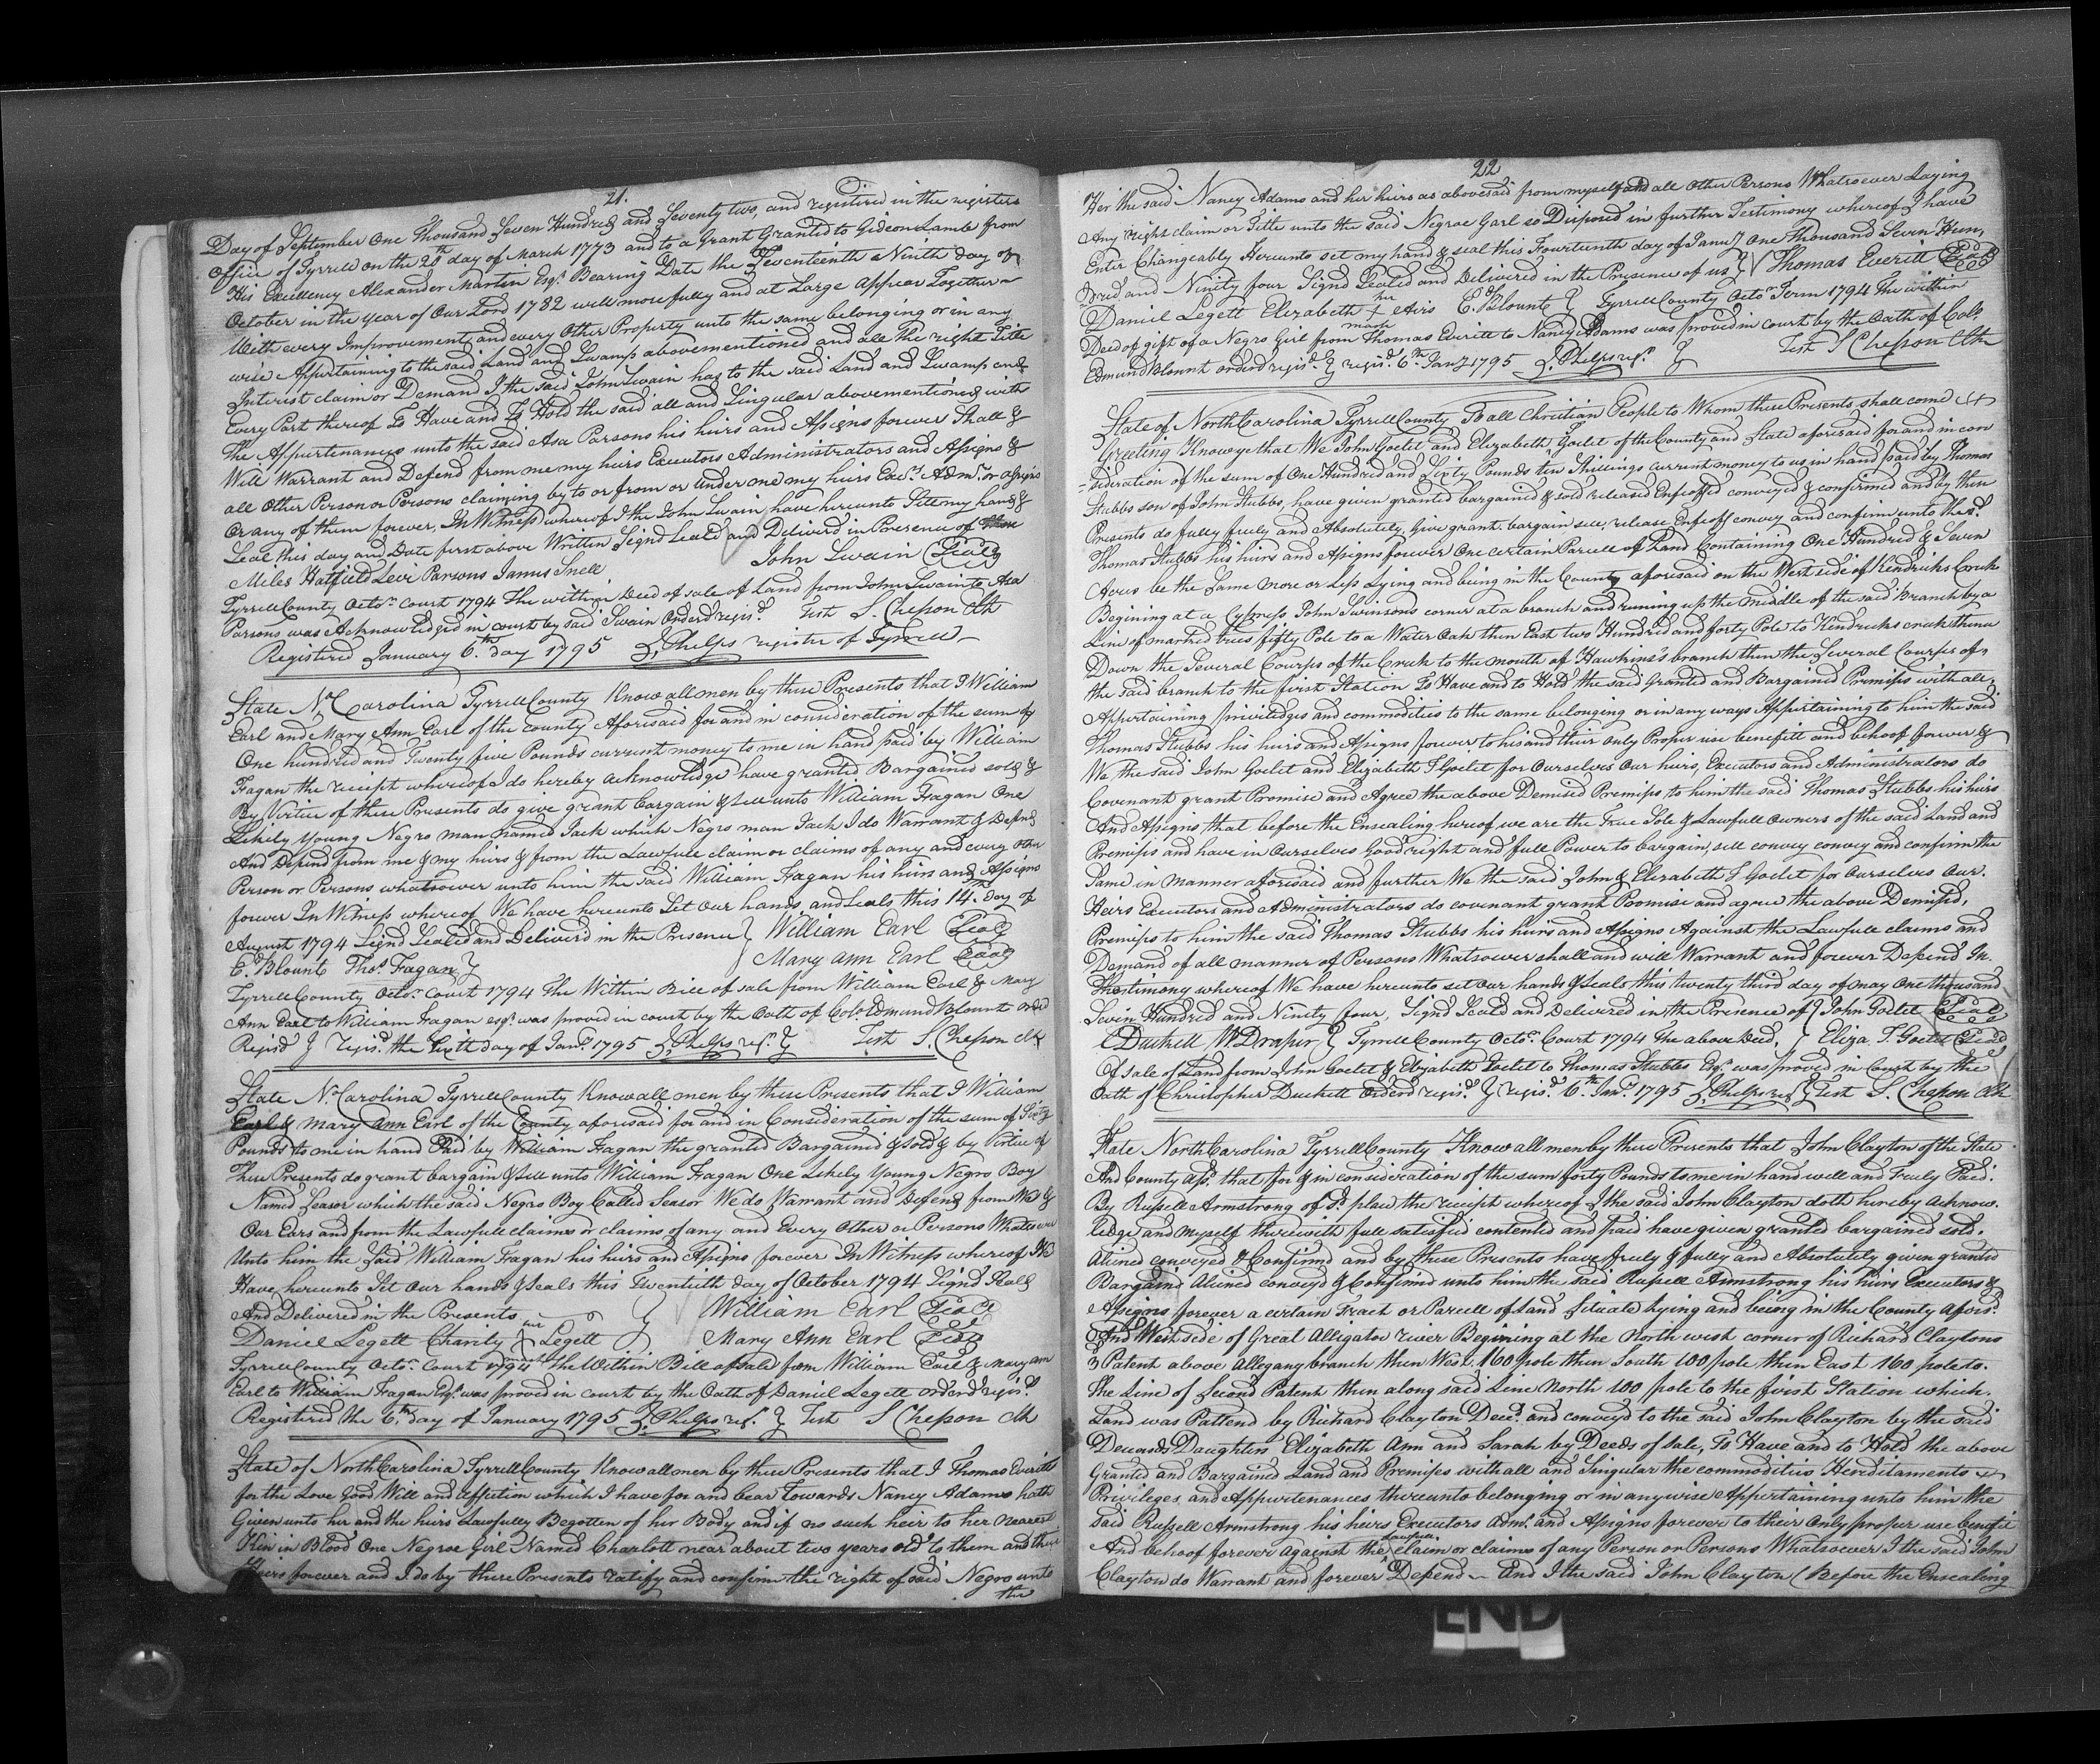 21.
Day of September One Thousand Seven Hundred and Seventy two, and registired in the registers
Office of Tyrrell on the 20th day of March 1773 and to a Grant Granted to Gideon Lamb from
His Excellency Alexander Martin Esqr. Bearing Date the Ninth day of
October in the year of Our Lord 1782 will more fully and at Large Appear Together
With every Improvement and every Other Property unto the same belonging or in any
wise Appertaining to the said Land and Swamp abovementioned and all the right Title
Interist claim or Demand I the said John Swain has to the said Land and Swamp and
Every Part thereof To Have and To Hold the said all and Singular abovementioned with
The Appurtenances unto the said Asa Parsons his heirs and Assigns forever Shall &
Will Warrant and Defend from me my heirs Executors Administrators and Assigns &
all Other Person or Persons claiming by to or from or Under me my heirs Exc.s Adm.rs or assigns
Or any of them forever, In Witness whereof I the John Swain have hereunto Sett my hand &
Seal this day and Date first above Written Signd Seald and Deliverd in Presence of
Miles Hatfield Levi Parsons James Snell John Swain Seal
Tyrrell County Octo.r court 1794 The within Deed of sale of Land from John Swain to Asa
Parsons was Acknowledged in court by said Swain Orderd regis.d Test S. Chesson Clk
Registired January 6.th day 1795 J. Phelps register of Tyrrell
State N.o Carolina Tyrrell County Know all men by these Presents that I William
Earl and Mary Ann Earl of the county Aforisaid for and in consideration of the sum of
One hundred and Twenty five Pounds current money to me in hand paid by William
Fagan the reciept whereof I do hereby acknowledge have granted Bargained sold &
By Virtue of these Presents do give grant bargain & sell unto William Fagan One
Likely Young Negro man named Jack which Negro man Jack I do Warrant & Defend
And Defend from me & my heirs & from the Lawfull claim or claims of any and every other
Person or Persons whatsoever unto him the said William Fagan his heirs and Assigns
forever In Witness whereof We have hereunto Set Our hands and Seals this 14.th Day of
August 1794 Signd Sealed and Deliverd in the Presence } William Earl Seal
E.d Blount Tho.s Fagan } Mary Ann Earl Seal
Tyrrell County Octo.r Court 1794 The Within Bill of sale from William Earl & Mary
Ann Earl to William Fagan esq.r was proved in court by the Oath of Col.o Edmund Blount orderd
Regisd } regis.d the Sixth day of Jan.y 1795 J. Phelps reg.r } Test S. Chesson clk
State N.o Carolina Tyrrell County Know all men by these Presents that I William
Earl & Mary Ann Earl of the County aforisaid for and in Consideration of the sum of Sixty
Pounds to me in hand Paid by William Fagan the granted Bargained & sold & by Virtue of
These Presents do grant bargain & sell unto William Fagan One Likely Young Negro Boy
Named Seasor which the said Negro Boy Called Seasor We do Warrant and Defend from We &
Our Ears and from the Lawfull claimes or claims of any and Every Other or Persons Whatsoever
Unto him the Said William Fagan his heirs and Assigns forever In Witness whereof We
Have hereunto Set Our hands & seals this Twentieth day of October 1794 Signd Seald
And Delivered in the Presents } William Earl Seal
Daniel Legett Charity her X Legett } Mary Ann Earl Seal
Tyrrell County Octo.r Court 1794 The Within Bill of sale from William Earl & Mary ann
Earl to William Fagan Esq.r was proved in court by the Oath of Daniel Legett orderd regis.d
Registered the 6.th day of January 1795 J. Phelps reg.r } Test S Chesson Clk
State of North Carolina Tyrrell County Know all men by these Presents that I Thomas Everitt
for the Love Good Will and Affection which I have for and bear Towards Nancy Adams hath
Given unto her and the heirs Lawfully Begotten of her Body and if no such heir to her nearest
Kin in Blood One Negroe Girl Named Charlott near about two years old to them and their
Heirs forever and I do by these Presents ratify and confirm the right of said Negro unto
the
22
Her the said Nancy Adams and her heirs as abovesaid from myself and all Other Persons Whatsoever Laying
Any right claim or Title unto the said Negroe Garl so Disposed in further Testimony whereof I have
Enter Changeably Hereunto set my hand & seal this Fourteenth day of Janu.y One thousand Seven Hun,
dred and Ninity four Signd Sealed and Delivered in the Presence of us } Thomas Everitt Seal
Daniel Legett Elizabeth her X mark Airs E.d Blount } Tyrrell County Octo.r Term 1794 The within
Deed of gift of a Negro Girl from Thomas Everitt to Nancy Adams was proved in court by the Oath of Col.o
Edmund Blount orderd regis.d } regis.d 6.th Jan.y 1795 J. Phelps reg.r } Test S Chesson Clk
State of North Carolina Tyrrell County To all Christian People to Whom these Presents shall come
Greeting Know ye that We John Goelet and Elizabeth Goelet of the County and State aforesaid for and in con
sideration of the sum of One Hundred and Sixty Pounds ten Shillings current money to us in hand paid by Thomas
Stubbs son of John Stubbs, have given granted bargained & sold released Enfeoffed conveyed & confirmed and by these
Presents do fully freely and Absolutely, Give grant. bargain sell, release Enfeoff convey and confirm unto the s.d
Thomas Stubbs his heirs and Assigns forever One certain Parcell of Land Containing One Hundred & Seven
Acres be the Same more or Less Lying and being in the County aforesaid on the West side of Kendricks Creek
Begining at a Cypress John Swinsons corner at a branch and runing up the middle of the said branch by a
Line of marked trees fifty Pole to a Water Oak then East two Hundred and forty Pole to Kendricks creek thence
Down the Several Courses of the Creek to the mouth of Hawkins's branch then the Several Courses of
the said branch to the first Station To Have and to Hold the said Granted and Bargained Premises with all
Appertaining priviledges and commodities to the same belonging or in any ways Appertaining to him the said
Thomas Stubbs his heirs and Assigns forever to his and their only Proper use benefitt and behoof forever &
We the said John Goelet and Elizabeth T Goelet for Ourselves Our heirs, Executors and Administrators do
Covenant grant Promise and Agree the above Demised Premises to him the said Thomas Stubbs his heirs
And Assigns that before the Ensealing hereof we are the True Sole & Lawfull Owners of the said Land and
Premises and have in Ourselves Good right and full Power to bargain, sell convey convey and confirm the
Same in manner aforisaid and further We the said John & Elizabeth T Goelet for Ourselves Our.
Heirs Executors and Administrators do covenant grant Promise and agree the above Demised,
Premises to him the said Thomas Stubbs his heirs and Assigns Against the Lawfull claims and
Demand of all manner of Persons Whatsoever shall and will Warrant and forever Defend In.
Testimony whereof We have hereunto set Our hands & Seals this twenty third day of may One thousand
Seven Hundred and Ninity four, Signd Seald and Delivered in the Presence of } John Goelet Seal
C Duckett W Draper } Tyrrell County Octo.r Court 1794 The above Deed, } Eliza. T. Goelet Seal
Of sale of Land from John Goelet & Elizabeth Goelet to Thomas Stubbs Esq.r was proved in Court by the
Oath of Christopher Duckett Orderd regis.d } regis.d 6.th Jan.y 1795 J. Phelps reg } Test S. Chesson Clk
State North Carolina Tyrrell County Know all men by these Presents that John Clayton of the State
And County afs.d that for & in consideration of the sum forty Pounds to me in hand well and Truly Paid.
By Russell Armstrong of s.d place the receipt whereof I the said John Clayton doth hereby acknow.
ledge and myself therewith full satisfied contented and paid have given granted bargained sold.
Aliened conveyed & Confirmd and by these Presents have fruly & fully and Absolutely given granted
Bargaind Aliened conveyd & Confirmed unto him the said Russell Armstrong his heirs Executors &
Assigns forever a certain Tract or Parcell of Land Situate lying and being in the County Aforis.d
And West side of Great Alligator river Begining at the North west corner of Richard Claytons
3 Patent above Allegany branch then West. 160 pole then South 100 pole then East 160 pole to.
The Line of Second Patent then along said Line North 100 pole to the first Station which.
Land was Pattend by Richard Clayton Dec.d and conveyd to the said John Clayton by the said
Deceasds Daughters Elizabeth Ann and Sarah by Deeds of Sale, To Have and to Hold the above
Granted and Bargained Land and Premises with all and Singular the commodities Hereditaments
Privileges, and Appurtenances thereunto belonging or in anywise Appertaining unto him the
said Russell Armstrong his heirs Executors adm.s and Assigns forever to their Only proper use benefit
And behoof forever against the Lawfull claim or claims of any Person or Persons Whatsoever I the said John
Clayton do Warrant and forever Defend - And I the said John Clayton (Before the Ensealing
END